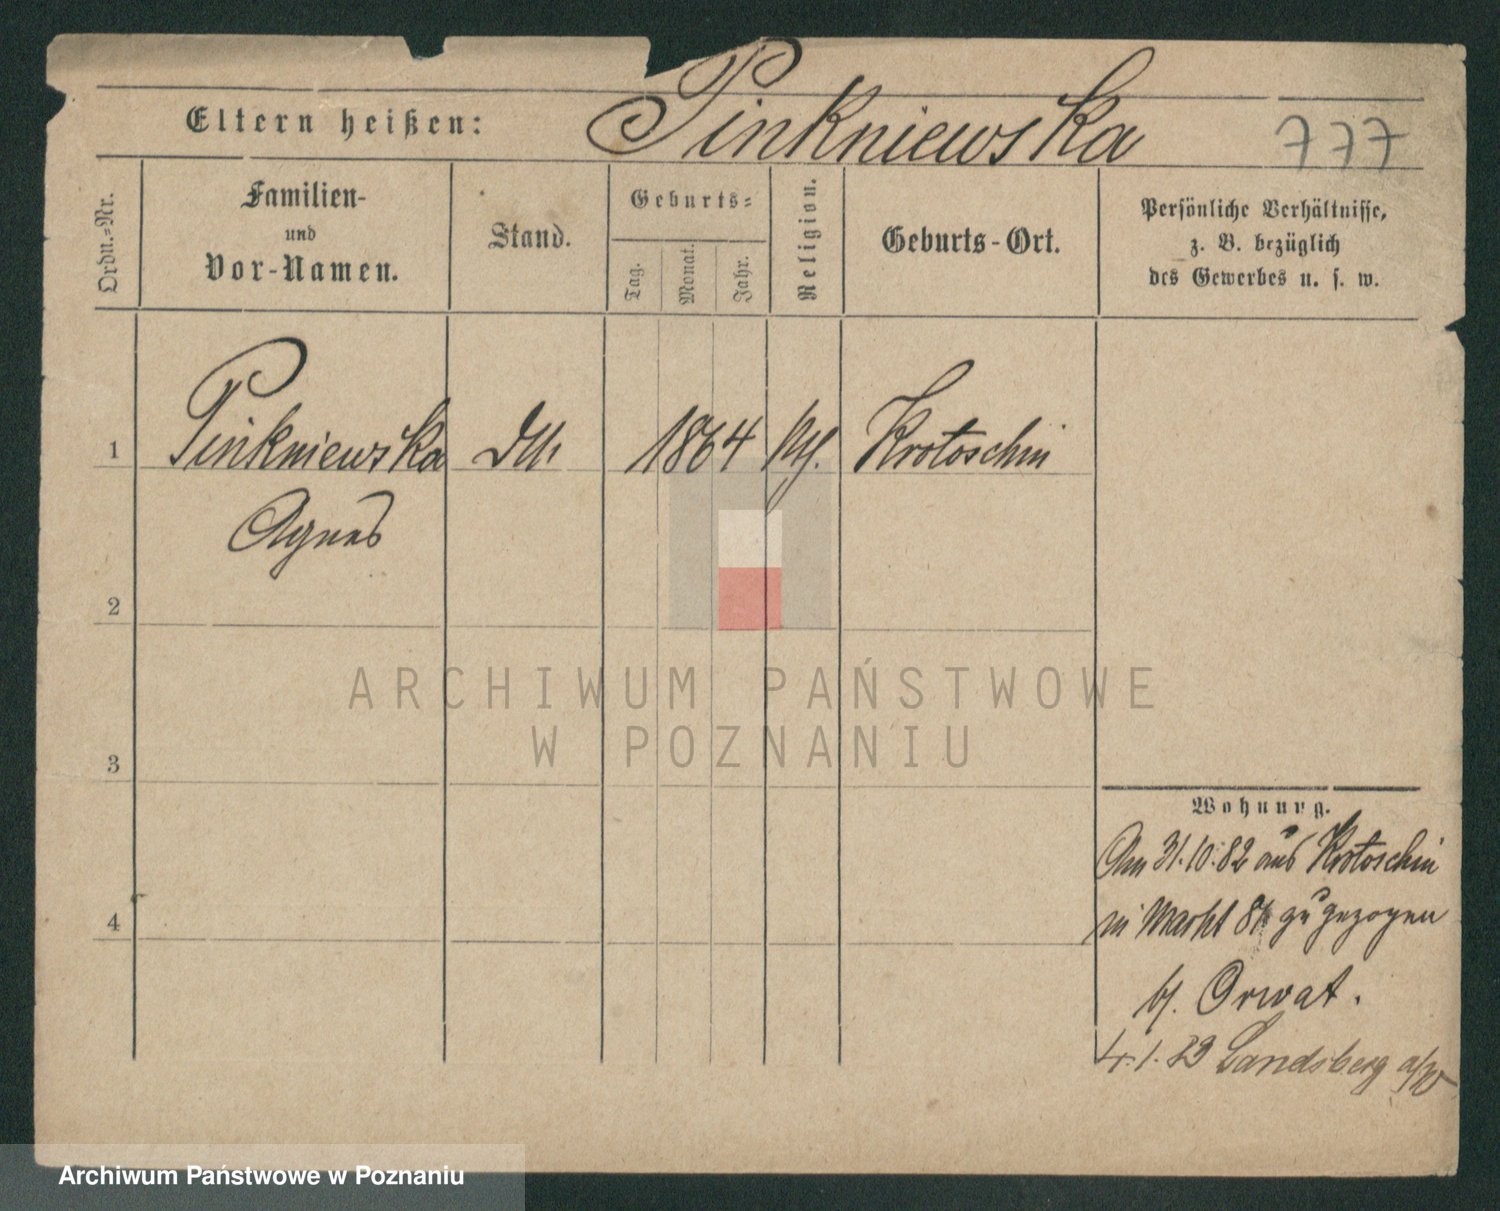 Eltern heißen: Pinkniewska 777
Ordn.=Nr.
Familien-
und
Vor-Namen.
Stand.
Geburts=
Tag.
Monat.
Jahr.
Religion.
Geburts-Ort.
Persönliche Verhältnisse,
z. B. bezüglich
des Gewerbes u. s. w.
1 Pinkniewska 1864 Krotoschin
Agnes
2
3
4
Wohnung.
Am 31.10.82 aus Krotoschin
in Markt zugezogen
b/. Orwat.
4.1.83 Landsberg a/W
ARCHIWUM PAŃSTWOWE
W POZNANIU
Archiwum Państwowe w Poznaniu